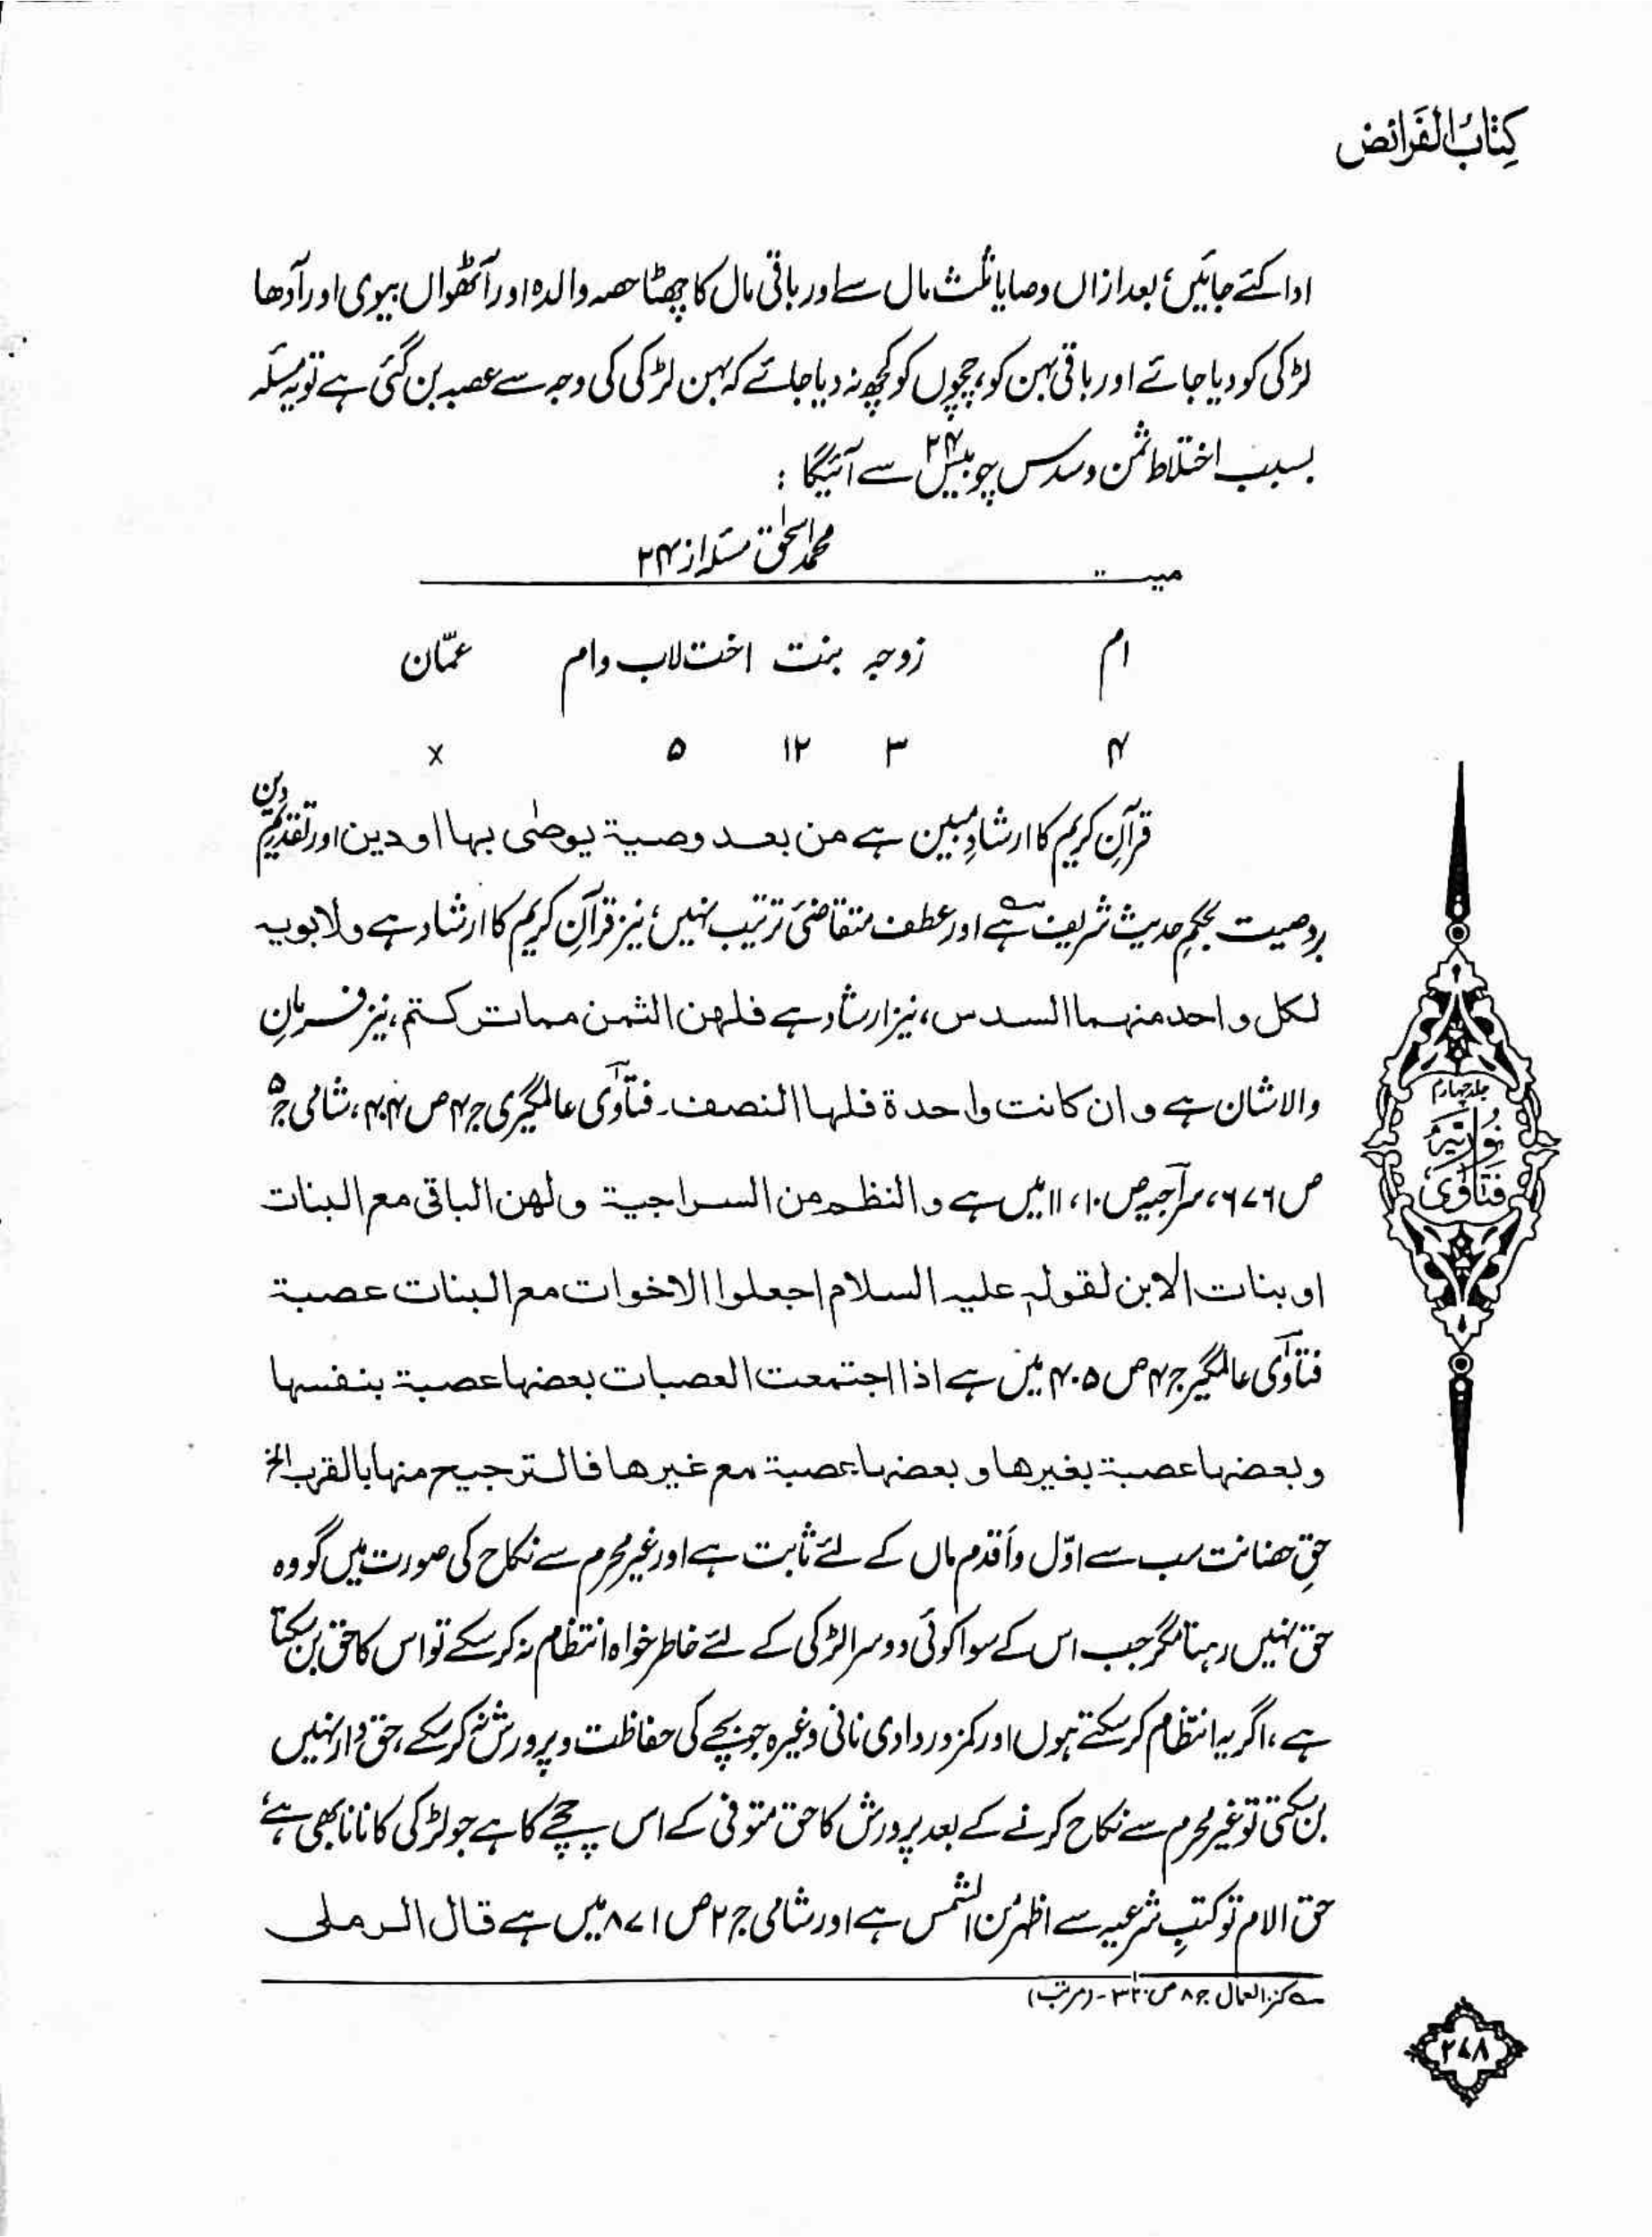 کِتَابُ الفَرَائض
ادا کئے جائیں، بعد ازاں وصایا ثلث مال سے اور باقی مال کا چھٹا حصہ والدہ اور آٹھواں بیوی اور آدھا
لڑکی کو دیا جائے اور باقی بہن کو، چچوں کو کچھ نہ دیا جائے کہ بہن لڑکی کی وجہ سے عصبہ بن گئی ہے تو یہ مسئلہ
بسبب اختلاط ثمن و سدس چوبیس۲۴ سے آئیگا :
محمد اسحٰق مسئلہ از ۲۴
میت
ام زوجہ بنت اخت لاب وام عمّان
۴ ۳ ۱۲ ۵ x
قرآنِ کریم کا ارشادِ مبین ہے من بعد وصیۃ یوصٰی بہا او دین اور تقدیمِ دین
بر وصیت بحکمِ حدیث شریف ہے اور عطف متقاضئ ترتیب نہیں، نیز قرآنِ کریم کا ارشاد ہے ولابویہ
لکل واحد منہما السدس، نیز ارشاد ہے فلہن الثمن مما ترکتم، نیز فرمانِ
والاشان ہے و ان کانت واحدۃ فلہا النصف۔ فتاوٰی عالمگیری ج۴ ص ۴۰۴، شامی ج۵
ص ۶۷۶، سراجیہ ص ۱۰، ۱۱ میں ہے والنظم من السراجیۃ ولہن الباقی مع البنات
او بنات الابن لقولہٖ علیہ السلام اجعلوا الاخوات مع البنات عصبۃ
فتاوٰی عالمگیر ج۴ ص ۴۰۵ میں ہے اذا اجتمعت العصبات بعضہا عصبۃ بنفسہا
و بعضہا عصبۃ بغیرھا و بعضہا عصبۃ مع غیرھا فالترجیح منہا بالقرب الخ
حقِ حضانت سب سے اوّل و اَقدم ماں کے لئے ثابت ہے اور غیر محرم سے نکاح کی صورت میں گو وہ
حق نہیں رہتا مگر جب اس کے سوا کوئی دوسرا لڑکی کے لئے خاطر خواہ انتظام نہ کر سکے تو اس کا حق بن سکتا
ہے، اگر یہ انتظام کر سکتے ہوں اور کمزور دادی نانی وغیرہ جو بچے کی حفاظت و پرورش نہ کر سکے، حق دار نہیں
بن سکتی تو غیر محرم سے نکاح کرنے کے بعد پرورش کا حق متوفی کے اس چچے کا ہے جو لڑکی کا نانا بھی ہے،
حق الام تو کتبِ شرعیہ سے اظہر من الشمس ہے اور شامی ج۲ ص ۸۷۱ میں ہے قال الرملی
کنز العمال ج۸ ص ۳۲۰۔ (مرتب)
جلد چہارم
نُوریّہ
فتَاوٰی
۲۷۸